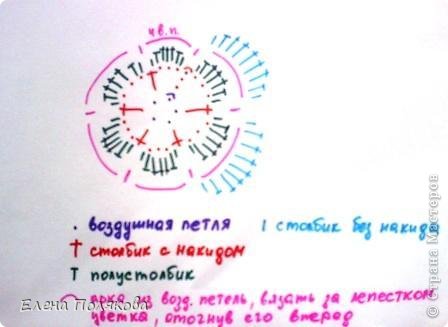 4 в.п.
. воздушная петля
ı столбик без накида
† столбик с накидом
т полустолбик
⌒ арка из возд. петель, вязать за лепестком
цветка, отогнув его вперед
Елена Полякова
© Страна Мастеров